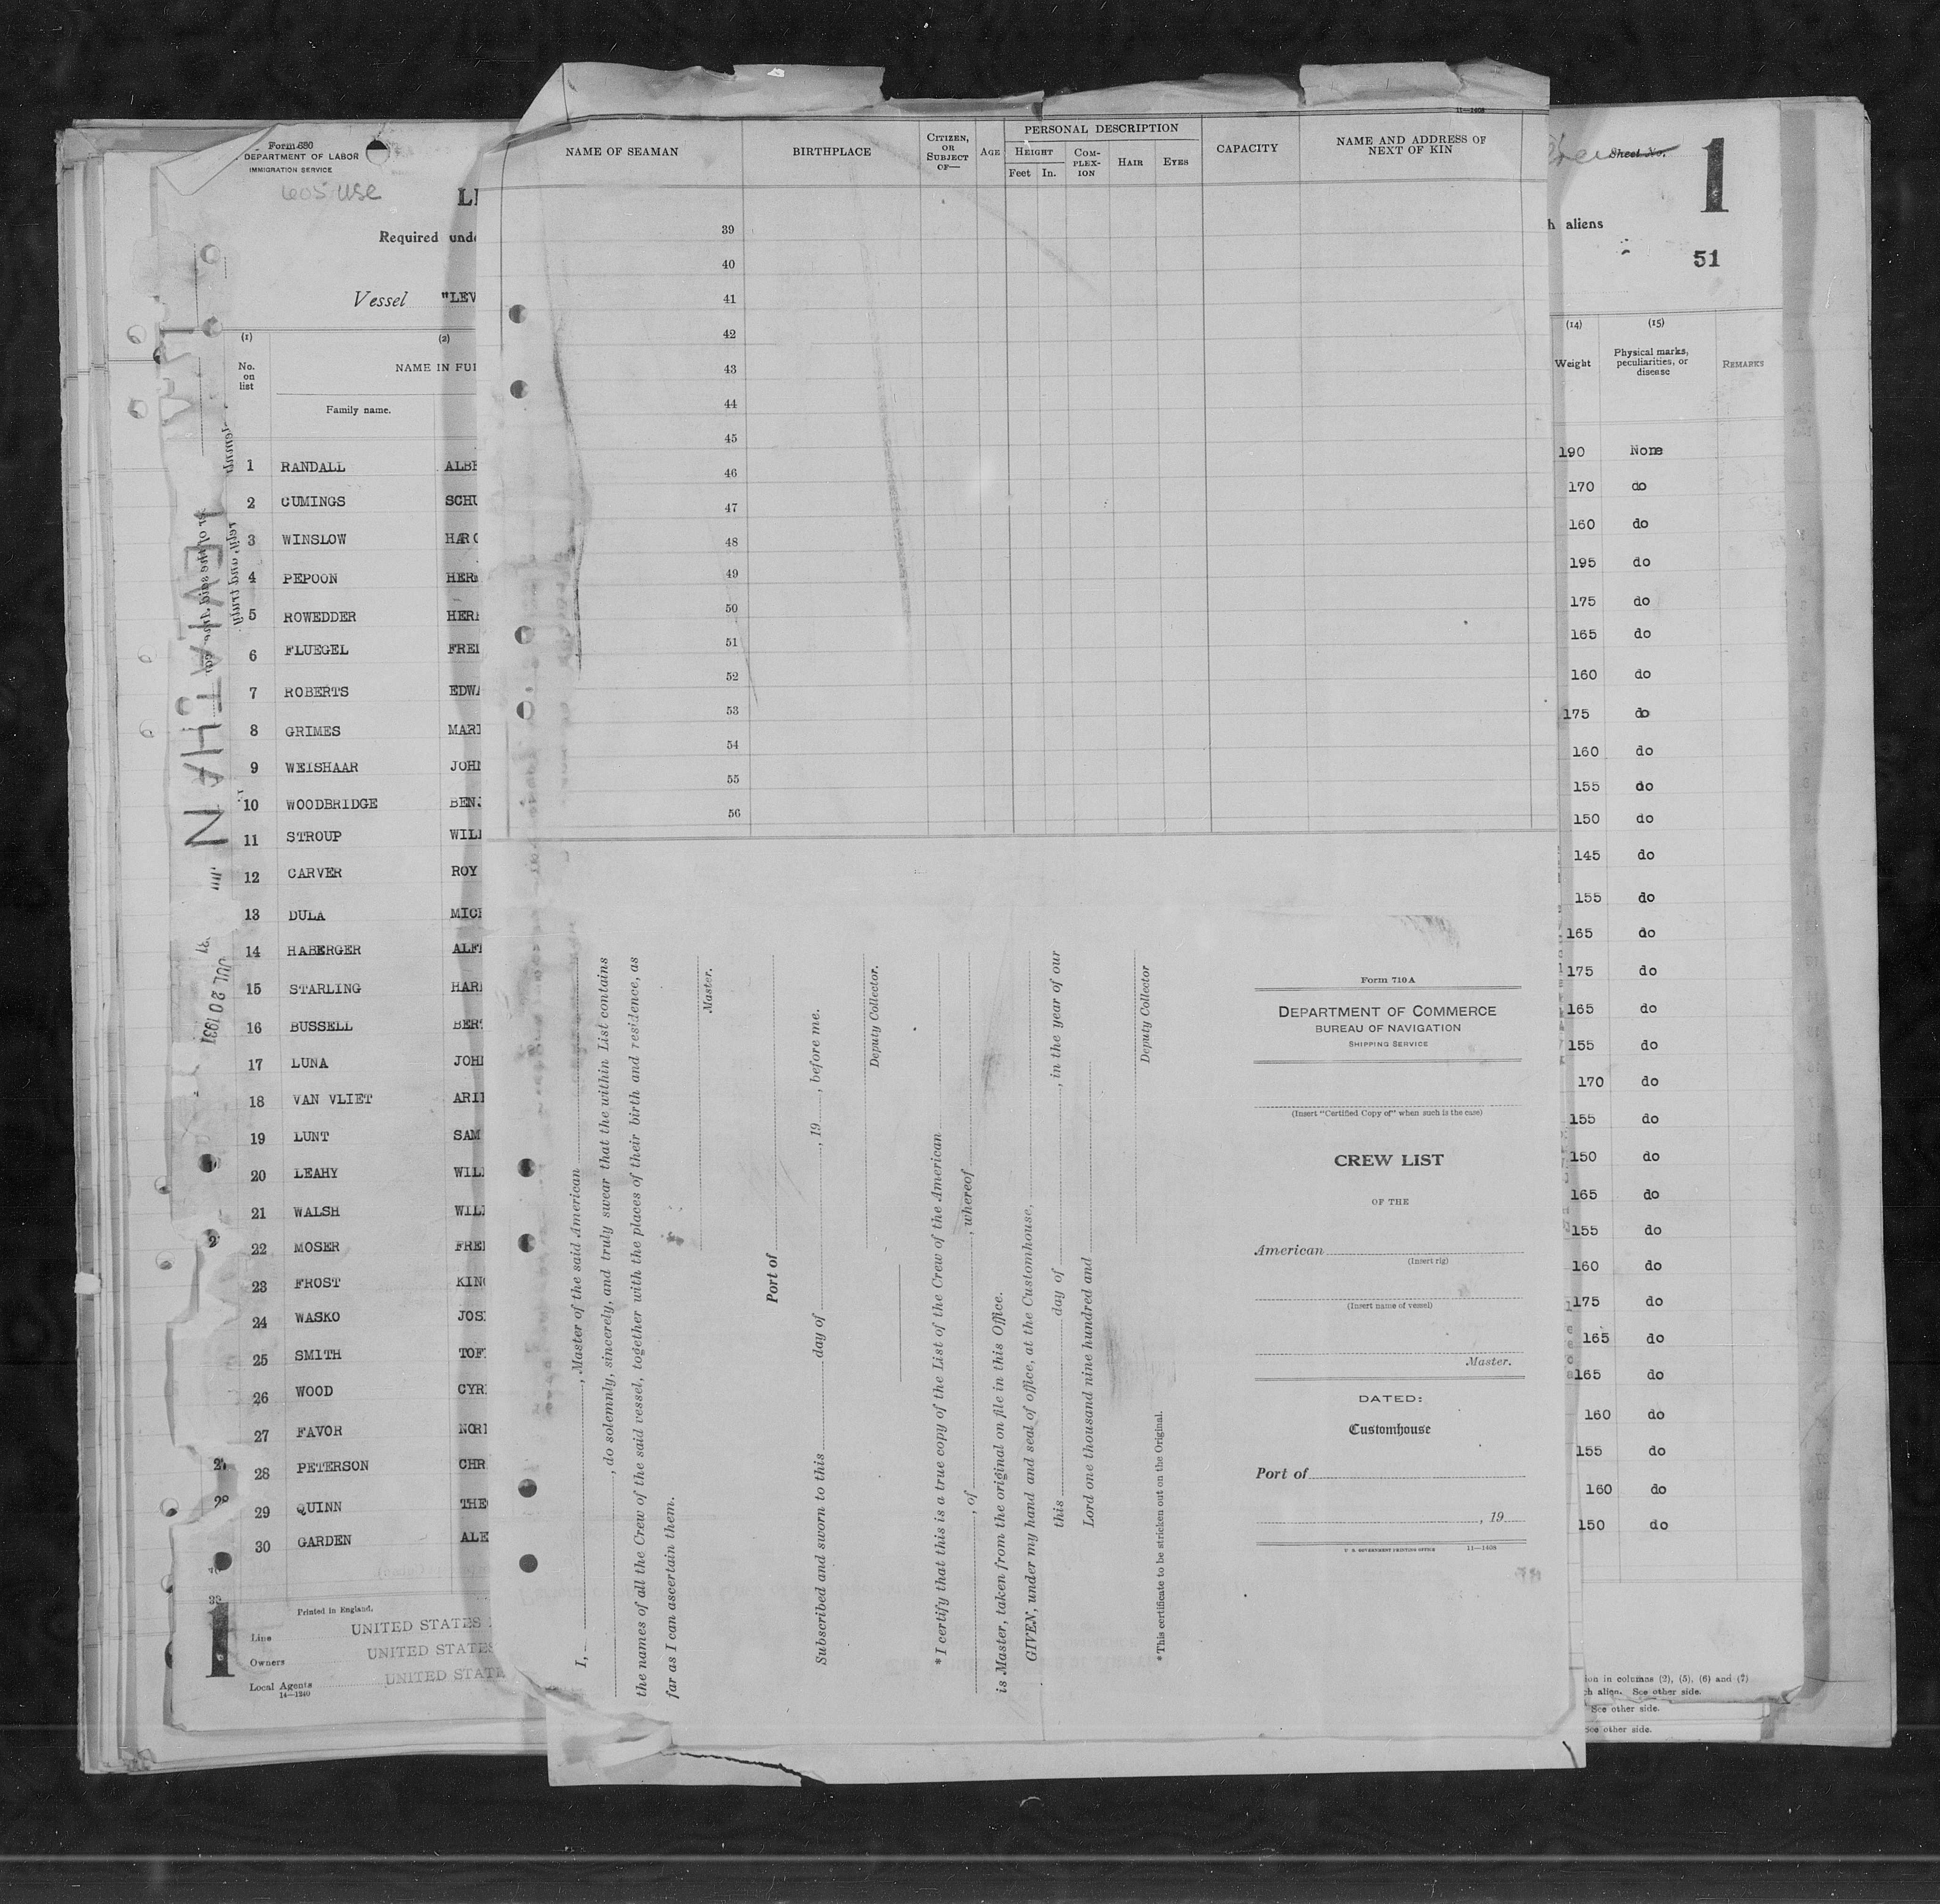 Form 680
DEPARTMENT OF LABOR
IMMIGRATION SERVICE
Required
Vessel "LEV
(1) (2)
No. on list
NAME IN FUL
Family name.
1 RANDALL ALBE
2 CUMINGS SCHU
3 WINSLOW HARO
4 PEPOON HERM
5 ROWEDDER HER
6 FLUEGEL FRE
7 ROBERTS EDW
8 GRIMES MAR
9 WEISHAAR JOH
10 WOODBRIDGE BEN
11 STROUP WIL
12 CARVER ROY
13 DULA MIC
14 HABERGER ALF
15 STARLING HAR
16 BUSSELL BER
17 LUNA JOH
18 VAN VLIET ARI
19 LUNT SAM
20 LEAHY WIL
21 WALSH WIL
22 MOSER FRE
23 FROST KIN
24 WASKO JOS
25 SMITH TOF
26 WOOD CYR
27 FAVOR NOR
28 PETERSON CHR
29 QUINN THE
30 GARDEN ALE
Printed in England.
Line UNITED STATES
Owners UNITED STATES
Local Agents UNITED STATE
14—1240
1
LEVIATHAN
JUL 20 1931
11—1408
NAME OF SEAMAN
BIRTHPLACE
CITIZEN, OR SUBJECT OF—
AGE
PERSONAL DESCRIPTION
HEIGHT
Feet In.
COM-PLEX-ION
HAIR
EYES
CAPACITY
NAME AND ADDRESS OF NEXT OF KIN
39
40
41
42
43
44
45
46
47
48
49
50
51
52
53
54
55
56
I, , Master of the said American
, do solemnly, sincerely, and truly swear that the within List contains
the names of all the Crew of the said vessel, together with the places of their birth and residence, as
far as I can ascertain them.
Master.
Port of
Subscribed and sworn to this day of , 19 , before me.
Deputy Collector.
*I certify that this is a true copy of the List of the Crew of the American
, of , whereof
is Master, taken from the original on file in this Office.
GIVEN, under my hand and seal of office, at the Customhouse,
this day of , in the year of our
Lord one thousand nine hundred and
Deputy Collector
*This certificate to be stricken out on the Original.
Form 710A
DEPARTMENT OF COMMERCE
BUREAU OF NAVIGATION
SHIPPING SERVICE
(Insert "Certified Copy of" when such is the case)
CREW LIST
OF THE
American
(Insert rig)
(Insert name of vessel)
Master.
DATED:
Customhouse
Port of
, 19
U. S. GOVERNMENT PRINTING OFFICE 11—1408
Sheet No. 1
h aliens
51
(14) (15)
Weight
Physical marks, peculiarities, or disease
REMARKS
190 None
170 do
160 do
195 do
175 do
165 do
160 do
175 do
160 do
155 do
150 do
145 do
155 do
165 do
175 do
165 do
155 do
170 do
155 do
150 do
165 do
155 do
160 do
175 do
165 do
165 do
160 do
155 do
160 do
150 do
ion in columns (2), (5), (6) and (7)
ch alien. See other side.
See other side.
See other side.